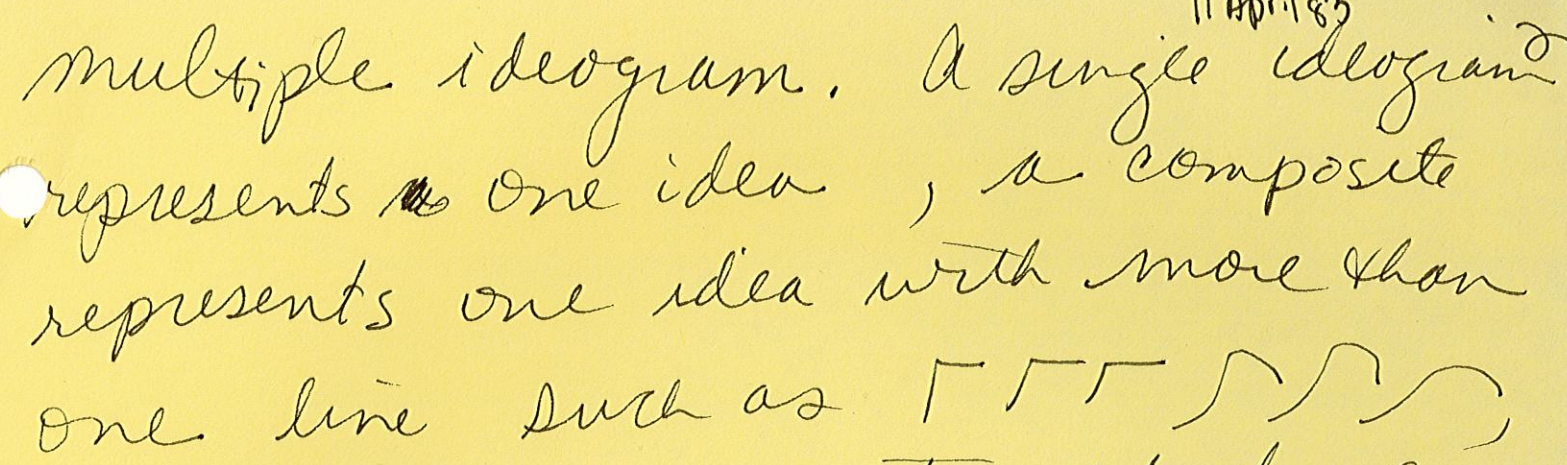 11 April 83
multiple ideogram. A single ideogram
represents one idea, a composite
represents one idea with more than
one line such as